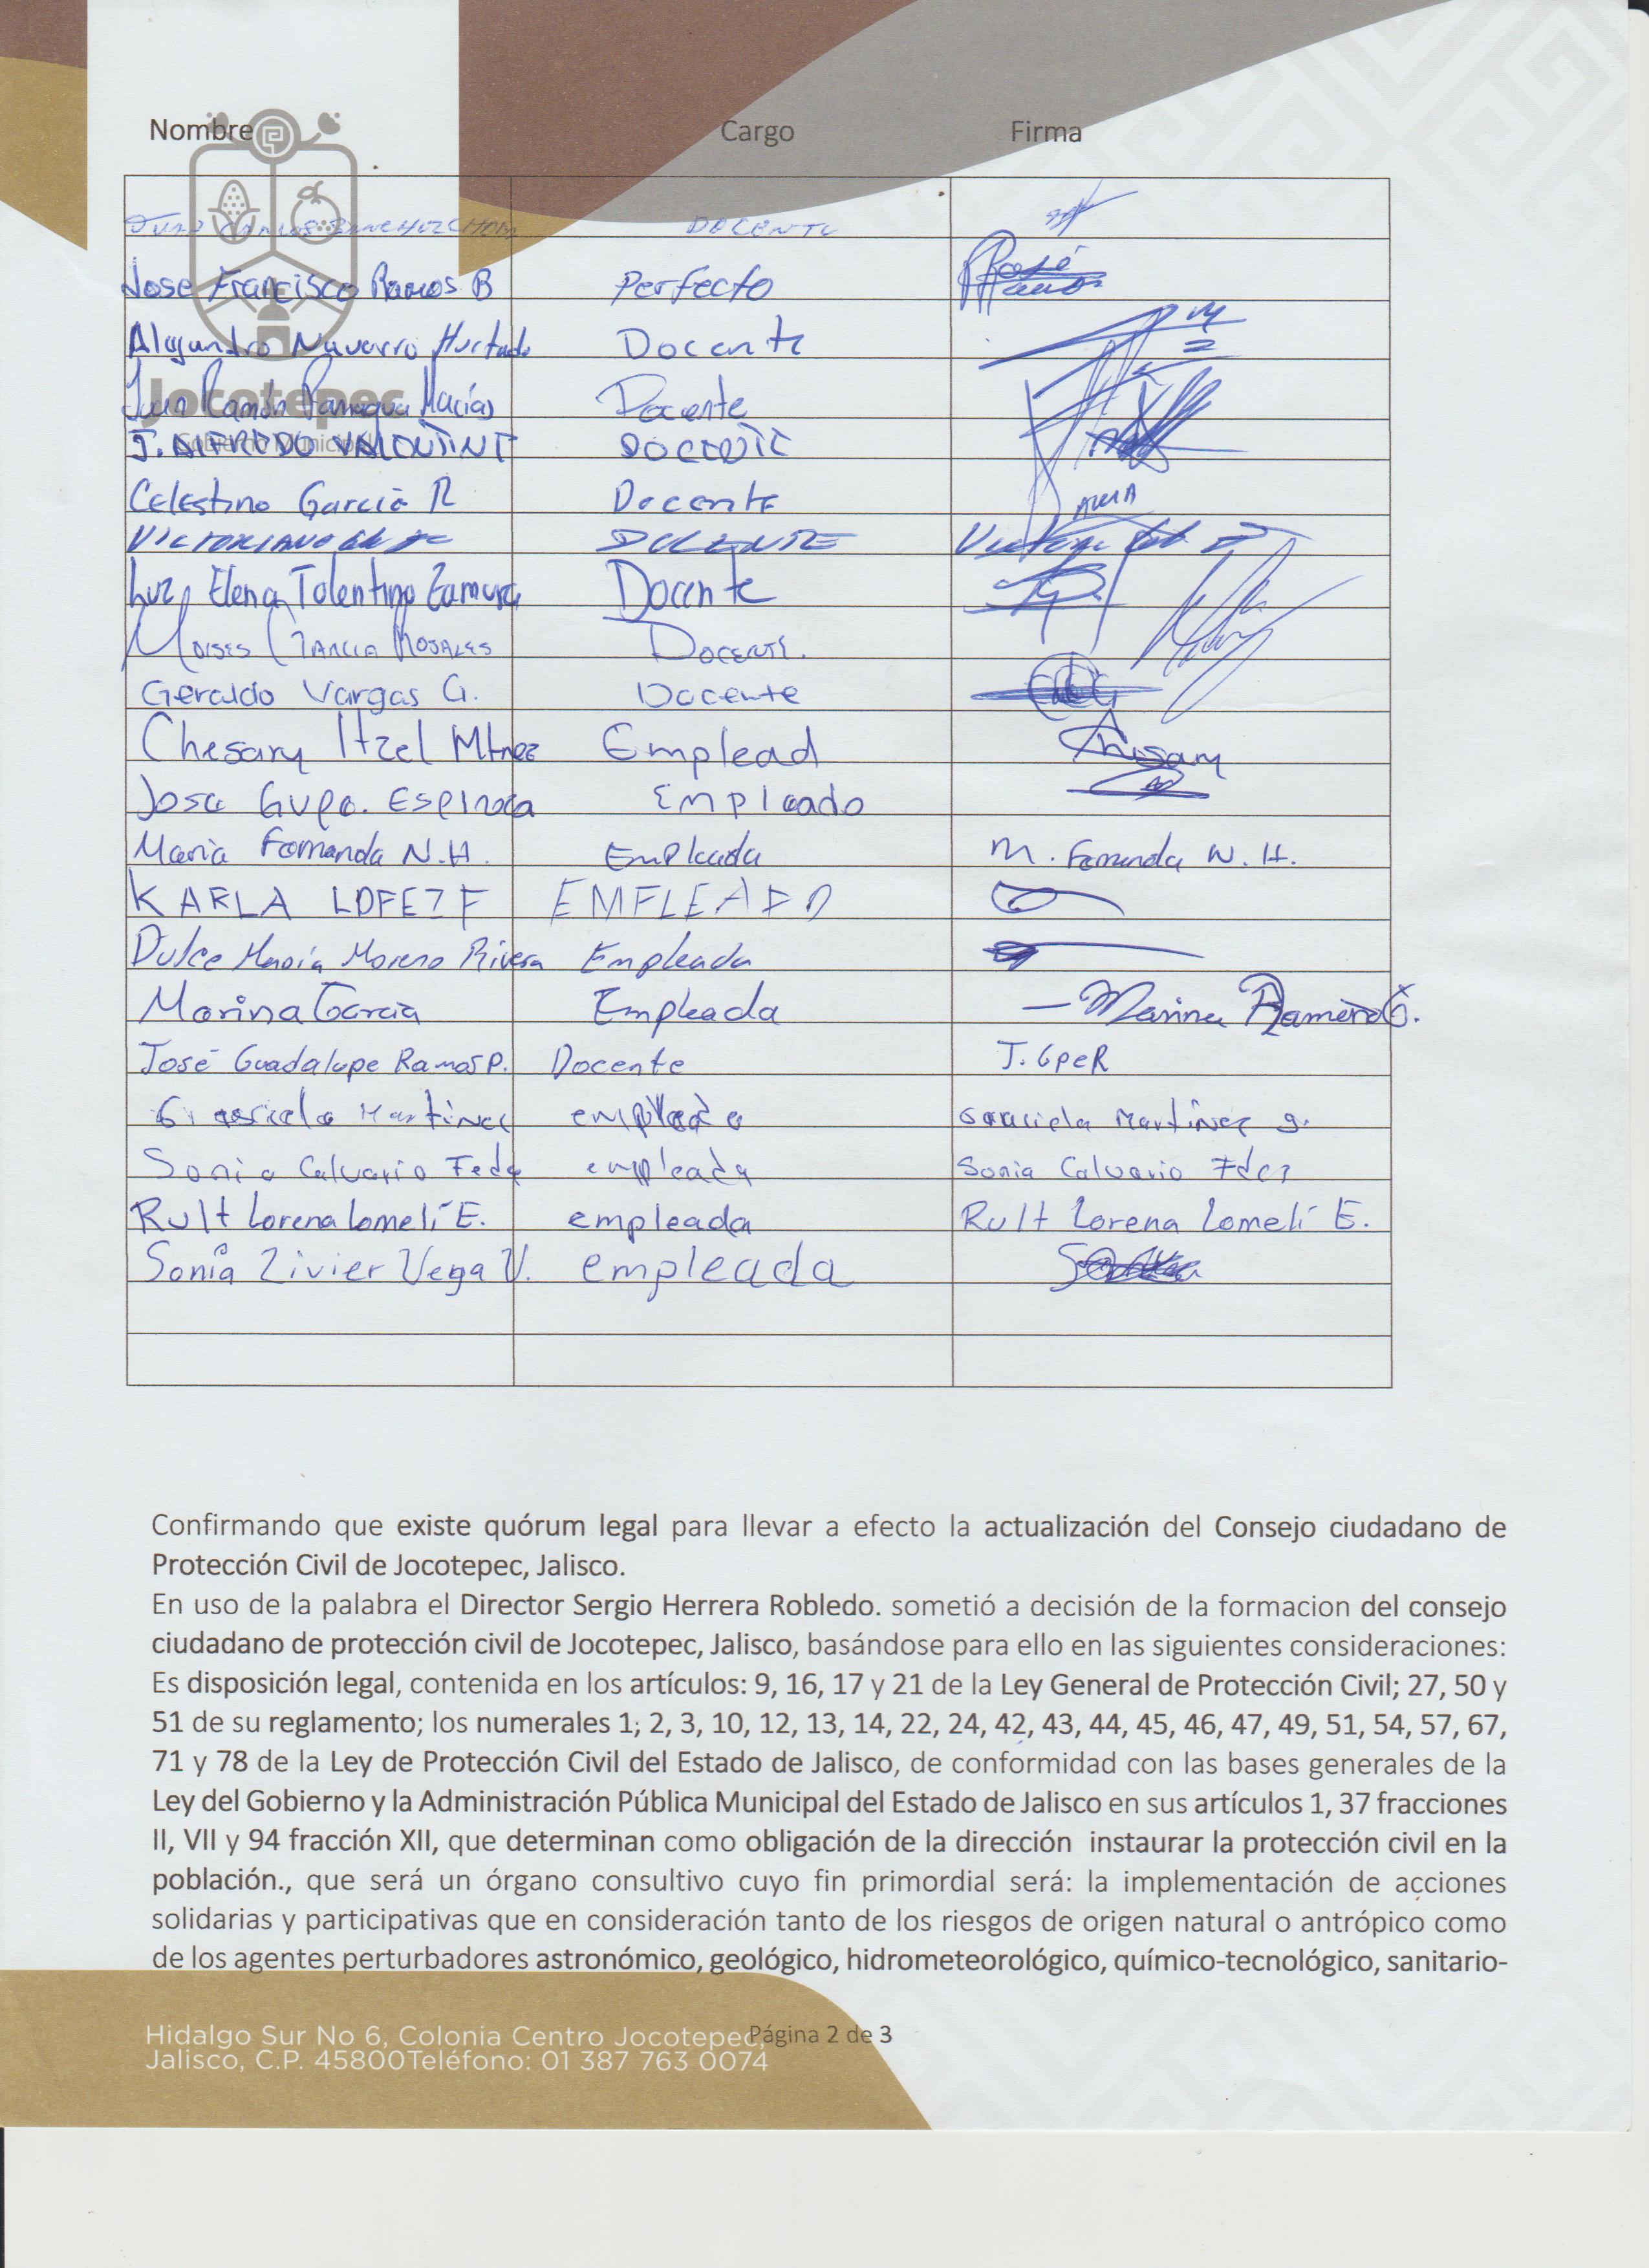 Nombre Cargo Firma
Jocotepec
Gobierno Municipal
DOCENTE
Jose Francisco Ramos B Perfecto José Ramos
Alejandro Navarro Hurtado Docente
Juan Ramón Macías Docente
J. ALFREDO VALENTIN DOCENTE
Celestino García R Docente
VICTORIANO DOCENTE
Luz Elena Tolentino Zamora Docente
Moises Garcia Rosales Docente.
Geraldo Vargas G. Docente
Chesary Itzel Mtnez Emplead Chesary
Jose Gupe. Espinoza Empleado
Maria Fernanda N.H. Empleada M. Fernanda N. H.
KARLA LOPEZ F EMPLEADO
Dulce María Moreno Rivera Empleada
Marina Garcia Empleada Marina Ramirez G.
José Guadalupe Ramos P. Docente J. GpeR
Graciela Martinez empleada Graciela Martinez g.
Sonia Calvario Fedz empleada Sonia Calvario Fdez
Rult Lorena Lomelí E. empleada Rult Lorena Lomelí E.
Sonia Livier Vega V. empleada
Confirmando que existe quórum legal para llevar a efecto la actualización del Consejo ciudadano de
Protección Civil de Jocotepec, Jalisco.
En uso de la palabra el Director Sergio Herrera Robledo. sometió a decisión de la formacion del consejo
ciudadano de protección civil de Jocotepec, Jalisco, basándose para ello en las siguientes consideraciones:
Es disposición legal, contenida en los artículos: 9, 16, 17 y 21 de la Ley General de Protección Civil; 27, 50 y
51 de su reglamento; los numerales 1; 2, 3, 10, 12, 13, 14, 22, 24, 42, 43, 44, 45, 46, 47, 49, 51, 54, 57, 67,
71 y 78 de la Ley de Protección Civil del Estado de Jalisco, de conformidad con las bases generales de la
Ley del Gobierno y la Administración Pública Municipal del Estado de Jalisco en sus artículos 1, 37 fracciones
II, VII y 94 fracción XII, que determinan como obligación de la dirección instaurar la protección civil en la
población., que será un órgano consultivo cuyo fin primordial será: la implementación de acciones
solidarias y participativas que en consideración tanto de los riesgos de origen natural o antrópico como
de los agentes perturbadores astronómico, geológico, hidrometeorológico, químico-tecnológico, sanitario-
Hidalgo Sur No 6, Colonia Centro Jocotepec, Página 2 de 3
Jalisco, C.P. 45800Teléfono: 01 387 763 0074